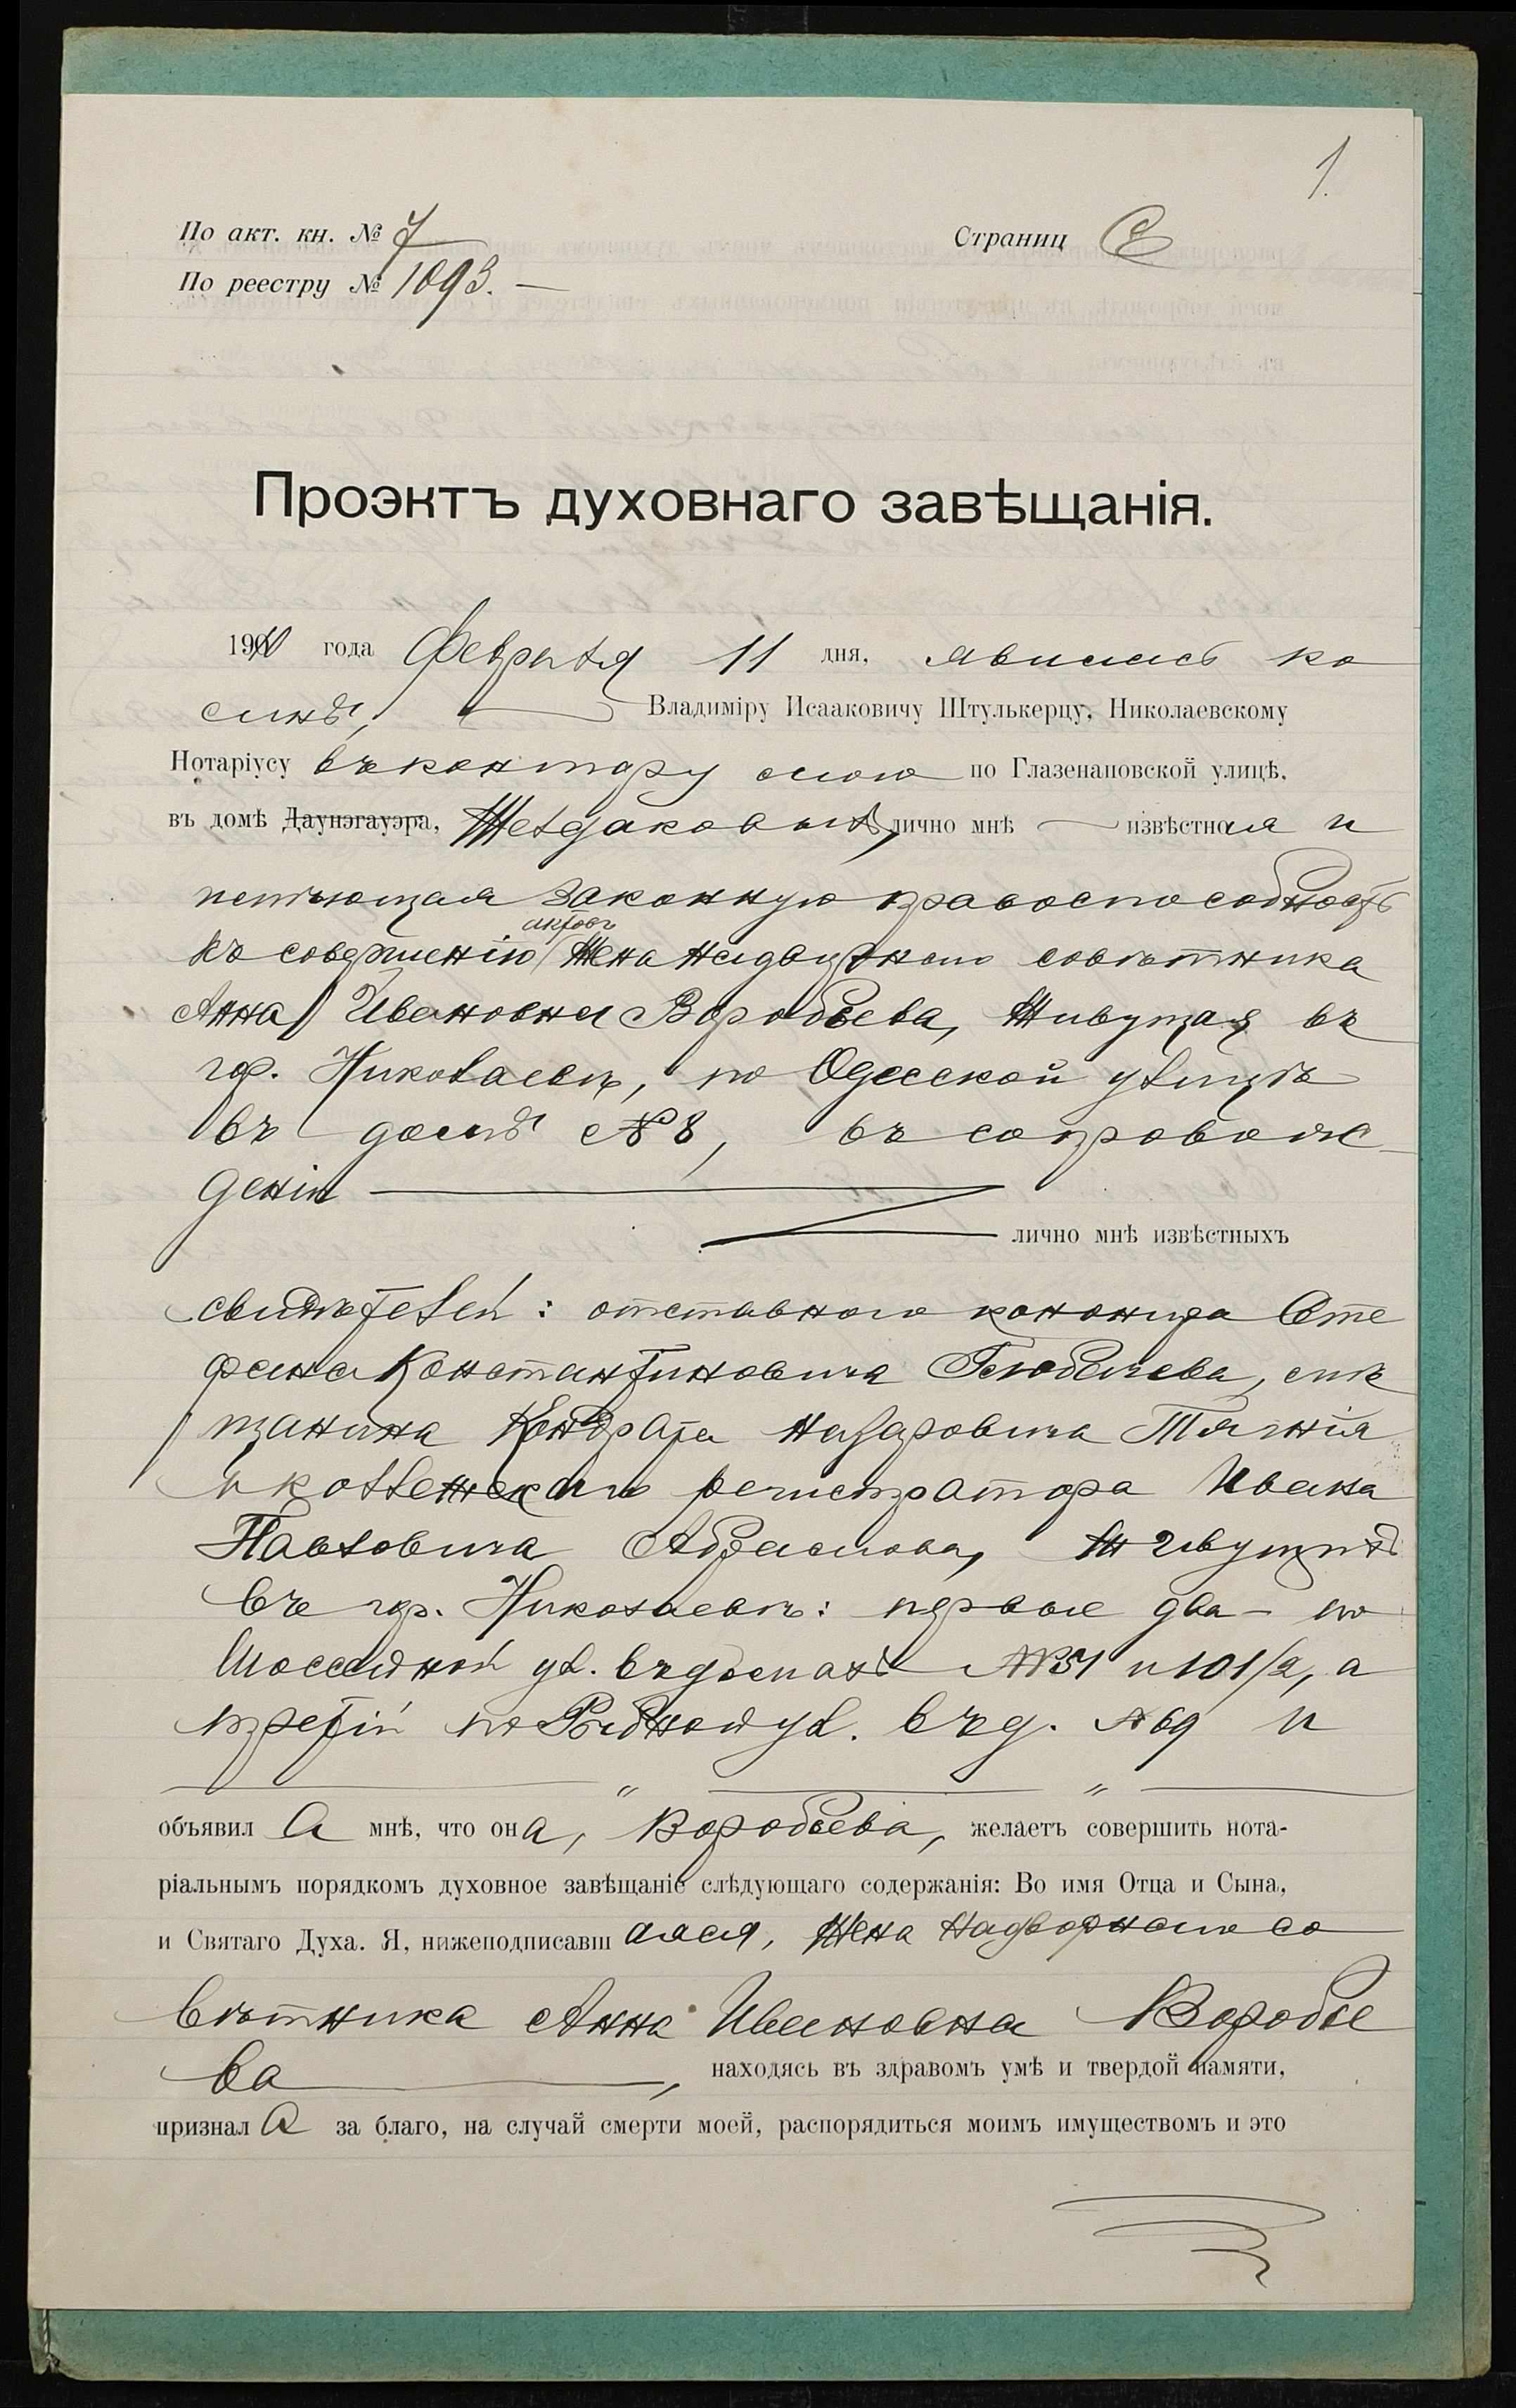 1.
По акт. кн. № 7
Страниц
По реестру № 1093. —
Проэктъ духовнаго завѣщанія.
года Февраля 11 дня, явилась ко
мнѣ, Владиміру Исааковичу Штулькерцу, Николаевскому
Нотаріусу въ контору мою по Глазенаповской улицѣ,
въ домѣ Даунэгауэра, Желдаковыхъ, лично мнѣ — извѣстная и
имѣющая законную правоспособность
актовъ
къ совершенію жена надворнаго совѣтника
Анна Ивановна Воробьева, живущая въ
гор. Николаевѣ, по Одесской улицѣ
въ домѣ № 8, въ сопровож-
деніи
лично мнѣ извѣстныхъ
свидѣтелей: отставного канонира Сте
фана Константиновича мѣ
щанина Кондрата Назаровича
и коллежскаго регистратора Ивана
Павловича Абрамова, живущихъ
въ гор. Николаевѣ: первые два - по
ул. въ домахъ №№ 51 и 101/2, а
третій по Рыбной ул. въ д. № 69 и
" "
объявила мнѣ, что она, Воробьева, желаетъ совершить нота-
ріальнымъ порядкомъ духовное завѣщаніе слѣдующаго содержанія: Во имя Отца и Сына,
и Святаго Духа. Я, нижеподписавшаяся, жена надворнаго со
вѣтника Анна Ивановна Воробье
ва, находясь въ здравомъ умѣ и твердой памяти,
признала за благо, на случай смерти моей, распорядиться моимъ имуществомъ и это